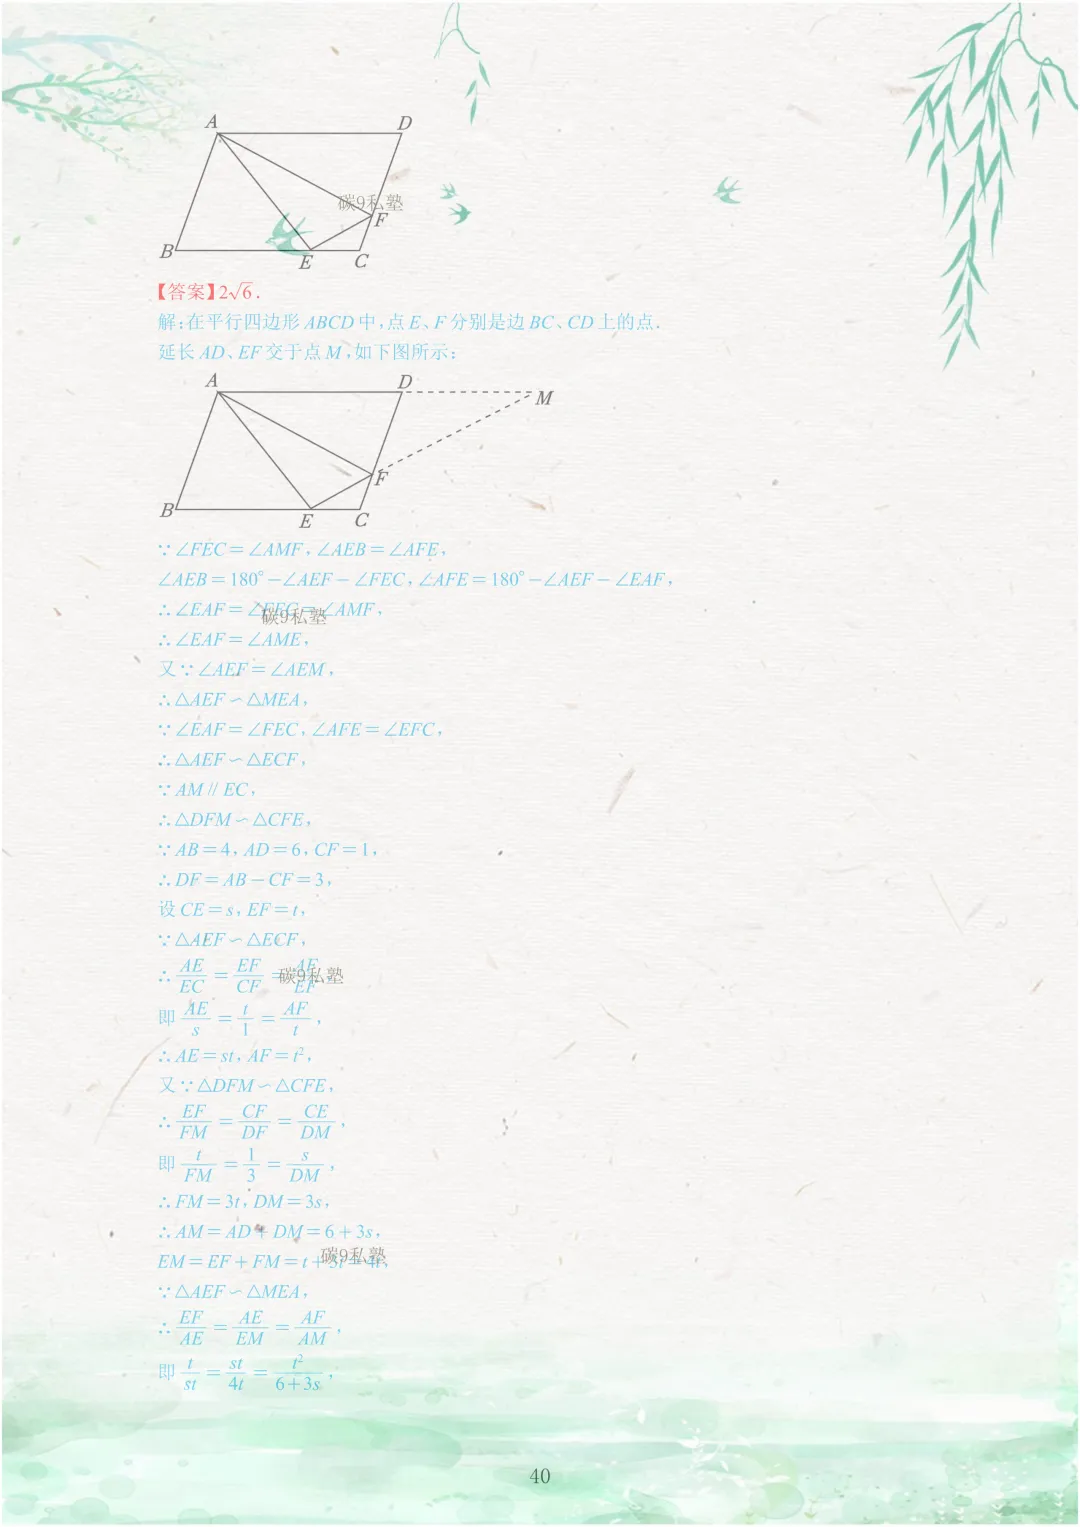 A D
碳9私塾
F
B E C
【答案】2√6.
解:在平行四边形ABCD中,点E、F分别是边BC、CD上的点.
延长AD、EF交于点M,如下图所示:
A D
M
F
B E C
∵∠FEC=∠AMF,∠AEB=∠AFE,
∠AEB=180°-∠AEF-∠FEC,∠AFE=180°-∠AEF-∠EAF,
∴∠EAF=∠FEC=∠AMF,
碳9私塾
∴∠EAF=∠AME,
又∵∠AEF=∠AEM,
∴△AEF∽△MEA,
∵∠EAF=∠FEC,∠AFE=∠EFC,
∴△AEF∽△ECF,
∵AM∥EC,
∴△DFM∽△CFE,
∵AB=4,AD=6,CF=1,
∴DF=AB-CF=3,
设CE=s,EF=t,
∵△AEF∽△ECF,
∴AE/EC=EF/CF=AF/EF,
碳9私塾
即AE/s=t/1=AF/t,
∴AE=st,AF=t²,
又∵△DFM∽△CFE,
∴EF/FM=CF/DF=CE/DM,
即t/FM=1/3=s/DM,
∴FM=3t,DM=3s,
∴AM=AD+DM=6+3s,
EM=EF+FM=t+3t=4t,
碳9私塾
∵△AEF∽△MEA,
∴EF/AE=AE/EM=AF/AM,
即t/st=st/4t=t²/6+3s,
40